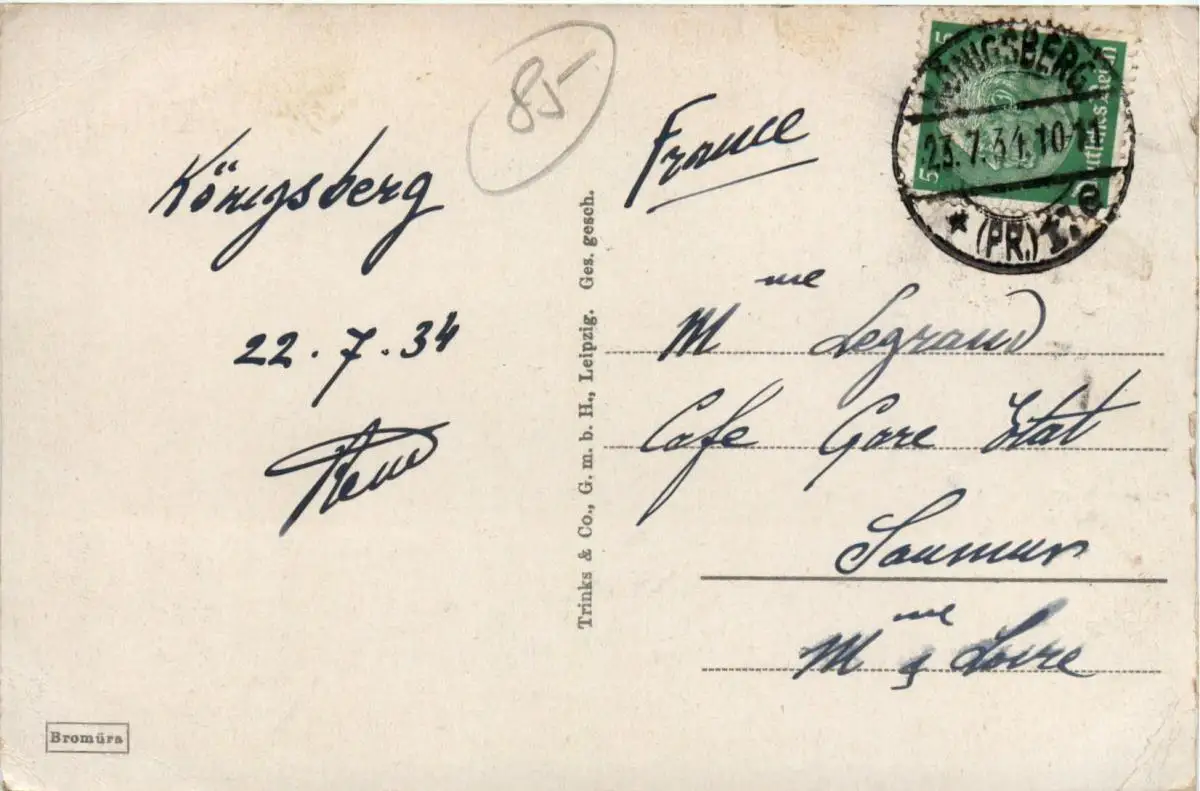 85
Königsberg
22.7.34
France
KÖNIGSBERG
23.7.34.10-11
* (PR.)
5
5
Deutsches Reich
Mme Legrand
Cafe Gare Etat
Saumur
Mne & Loire
Trinks & Co., G. m. b. H., Leipzig. Ges. gesch.
Bromüra